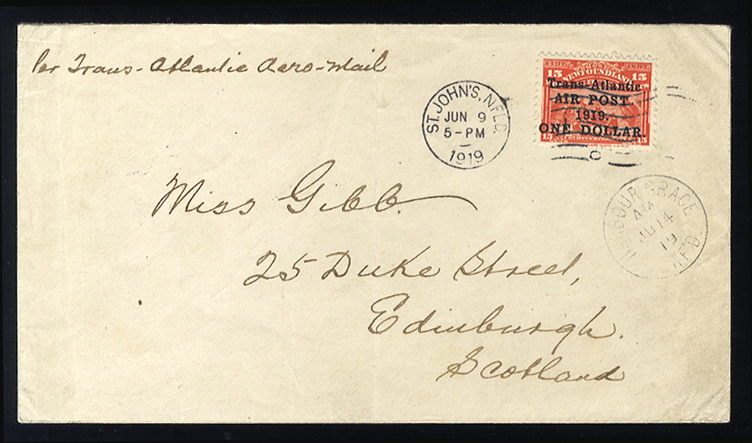 Per Trans-Atlantic Aero-Mail
15 15
NEWFOUNDLAND
Trans-Atlantic
AIR POST.
1919.
ONE DOLLAR.
15 15
ST. JOHN'S, NFLD
JUN 9
5-PM
1919
HARBOUR GRACE
AM
JU 14
19
NF'D.
Miss Gibb.
25 Duke Street,
Edinburgh.
Scotland